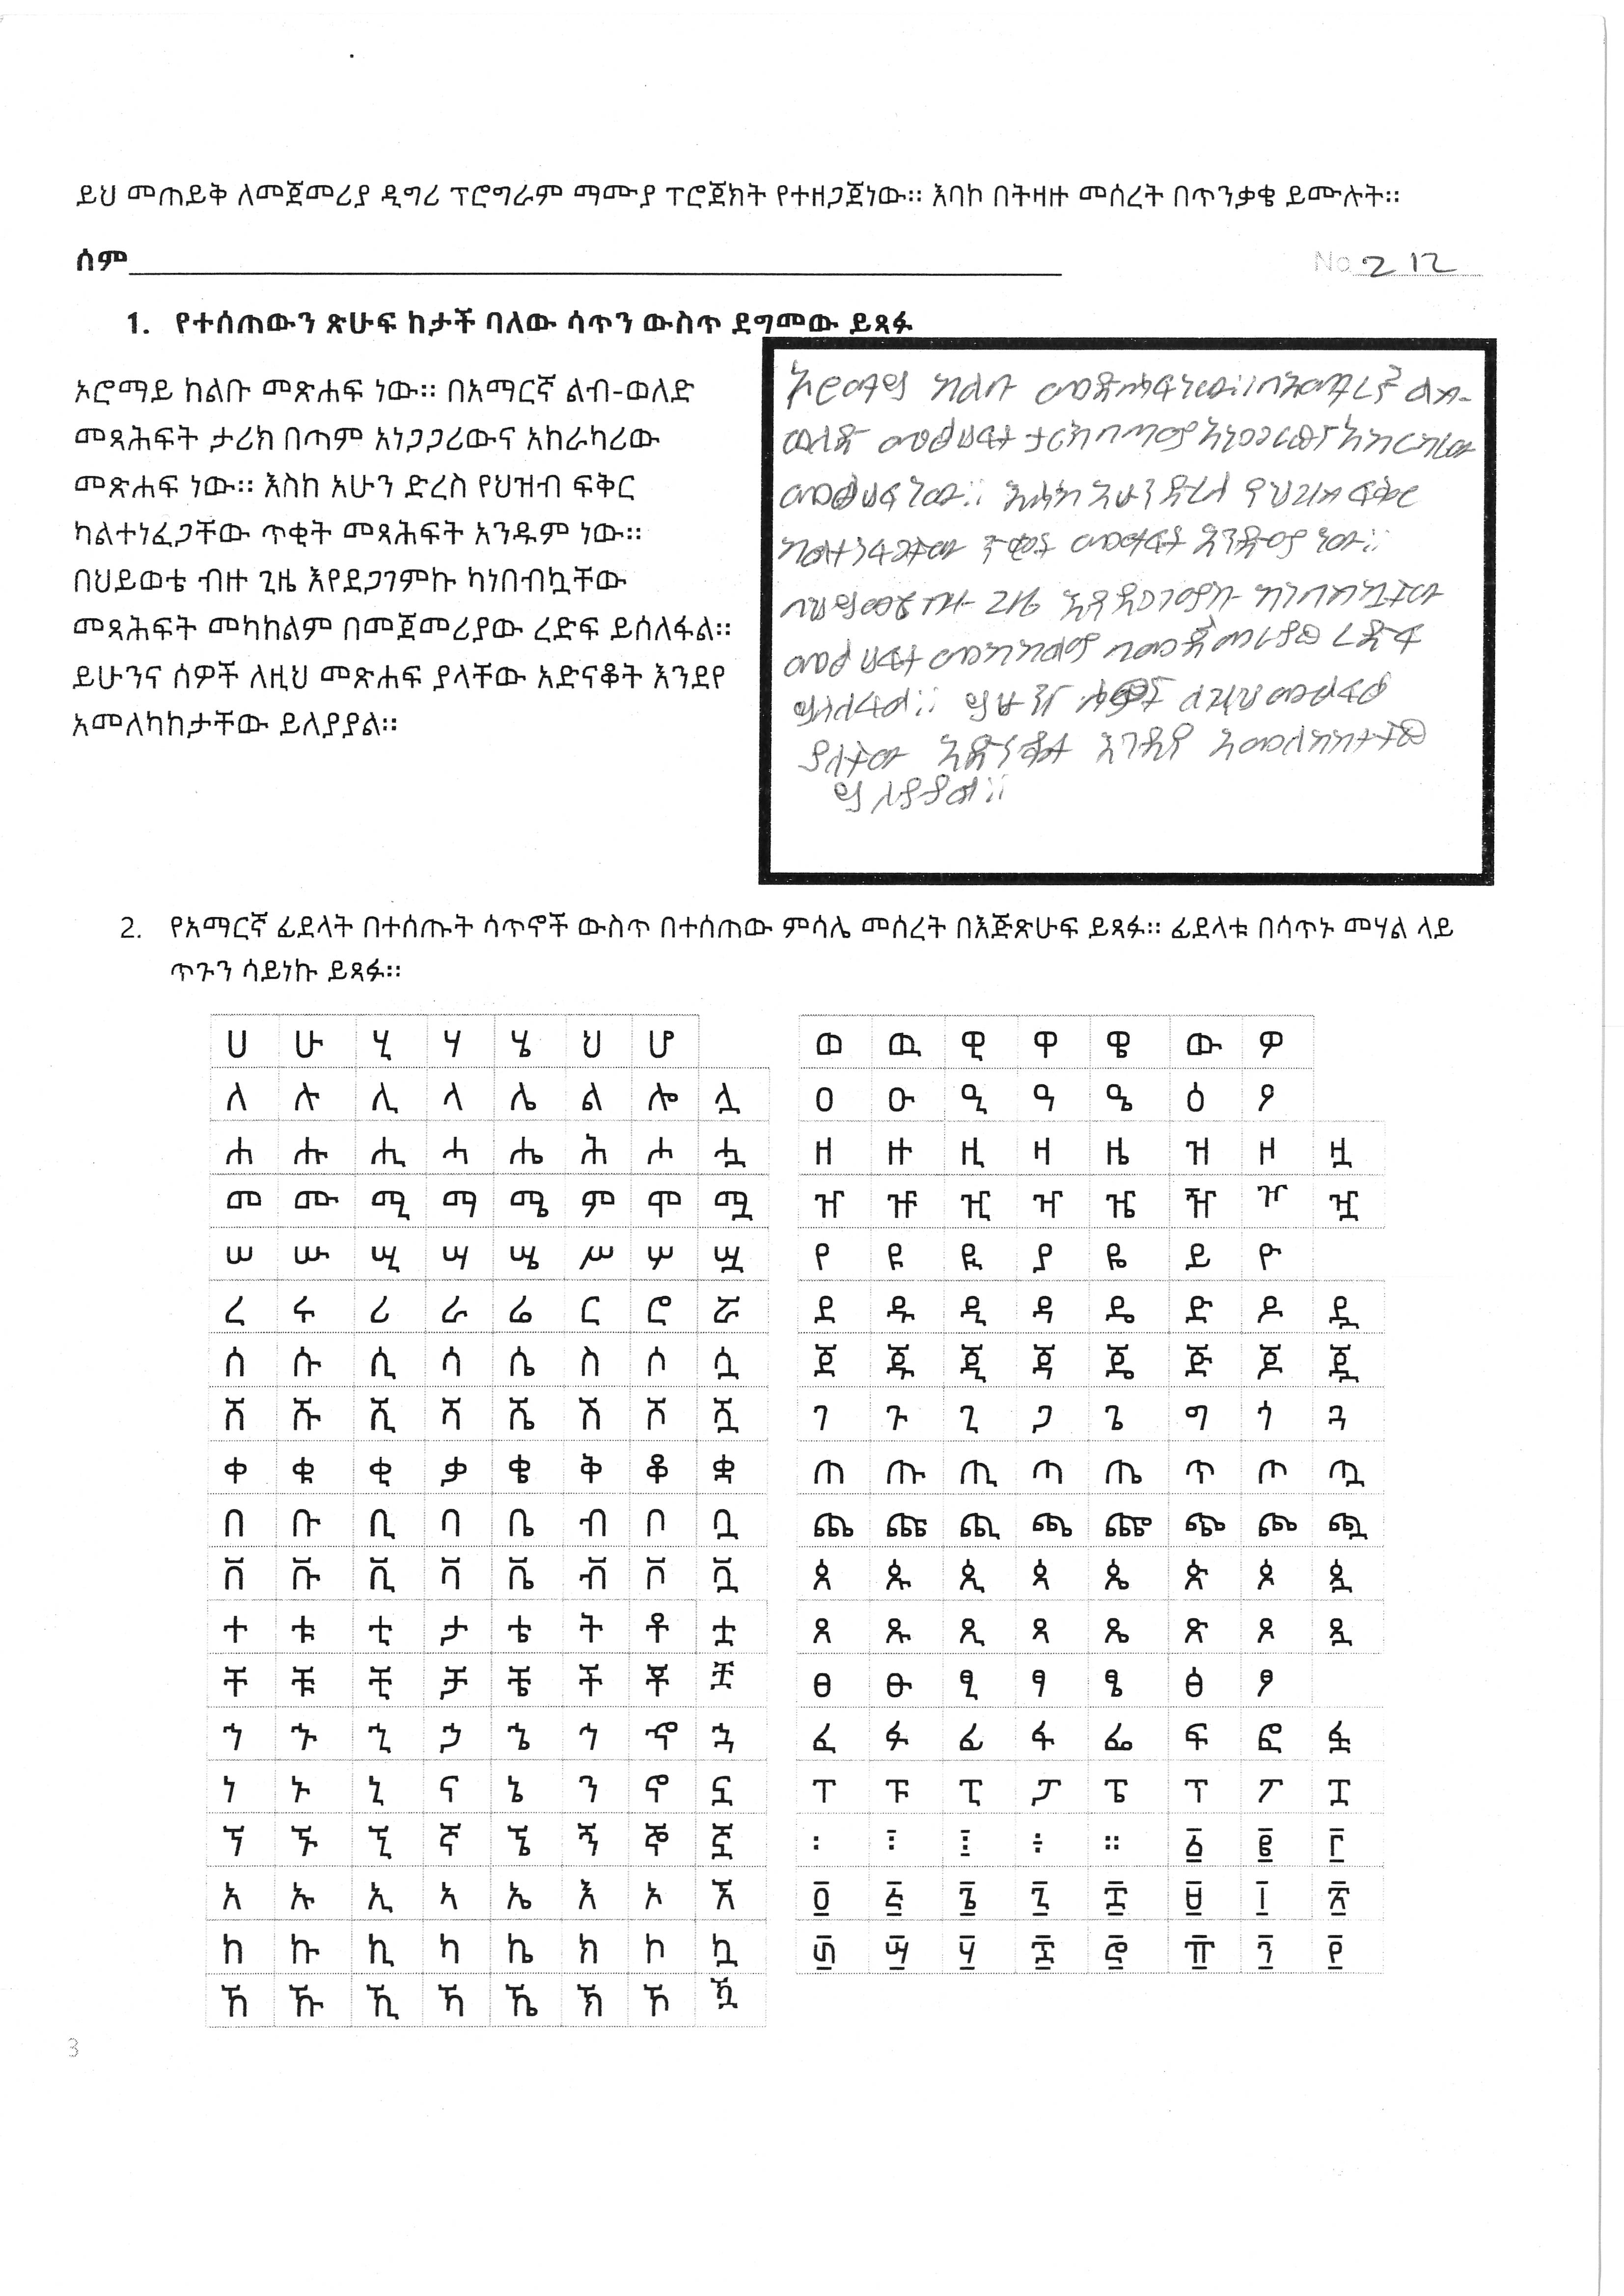 ይህ መጠይቅ ለመጀመሪያ ዲግሪ ፕሮግራም ማሙያ ፕሮጀክት የተዘጋጀነው። እባኮ በትዛዙ መሰረት በጥንቃቄ ይሙሉት።
ሰም No 212
1. የተሰጠውን ጽሁፍ ከታች ባለው ሳጥን ውስጥ ደግመው ይጻፉ
ኦሮማይ ከልቡ መጽሐፍ ነው። በአማርኛ ልብ-ወለድ
መጻሕፍት ታሪክ በጣም አነጋጋሪውና አከራካሪው
መጽሐፍ ነው። እስከ አሁን ድረስ የህዝብ ፍቅር
ካልተነፈጋቸው ጥቂት መጻሕፍት አንዱም ነው።
በህይወቴ ብዙ ጊዜ እየደጋገምኩ ካነበብኳቸው
መጻሕፍት መካከልም በመጀመሪያው ረድፍ ይሰለፋል።
ይሁንና ሰዎች ለዚህ መጽሐፍ ያላቸው አድናቆት እንደየ
አመለካከታቸው ይለያያል።
ኦሮማይ ከልቡ መጽሐፍ ነው። በአማርኛ ልብ-
ወለድ
ነው። እስከ አሁን ድረስ የህዝብ ፍቅር
ጥቂት አንዱም ነው።
ጊዜ
ረድፍ
ይሰለፋል።
አድናቆት
ይለያያል።
2. የአማርኛ ፊደላት በተሰጡት ሳጥኖች ውስጥ በተሰጠው ምሳሌ መሰረት በእጅጽሁፍ ይጻፉ። ፊደላቱ በሳጥኑ መሃል ላይ
ጥጉን ሳይነኩ ይጻፉ።
ሀ ሁ ሂ ሃ ሄ ህ ሆ
ለ ሉ ሊ ላ ሌ ል ሎ ሏ
ሐ ሑ ሒ ሓ ሔ ሕ ሖ ሗ
መ ሙ ሚ ማ ሜ ም ሞ ሟ
ሠ ሡ ሢ ሣ ሤ ሥ ሦ ሧ
ረ ሩ ሪ ራ ሬ ር ሮ ሯ
ሰ ሱ ሲ ሳ ሴ ስ ሶ ሷ
ሸ ሹ ሺ ሻ ሼ ሽ ሾ ሿ
ቀ ቁ ቂ ቃ ቄ ቅ ቆ ቋ
በ ቡ ቢ ባ ቤ ብ ቦ ቧ
ቨ ቩ ቪ ቫ ቬ ቭ ቮ ቯ
ተ ቱ ቲ ታ ቴ ት ቶ ቷ
ቸ ቹ ቺ ቻ ቼ ች ቾ ቿ
ኀ ኁ ኂ ኃ ኄ ኅ ኆ ኋ
ነ ኑ ኒ ና ኔ ን ኖ ኗ
ኘ ኙ ኚ ኛ ኜ ኝ ኞ ኟ
አ ኡ ኢ ኣ ኤ እ ኦ ኧ
ከ ኩ ኪ ካ ኬ ክ ኮ ኳ
ኸ ኹ ኺ ኻ ኼ ኽ ኾ ዃ
ወ ዉ ዊ ዋ ዌ ው ዎ
ዐ ዑ ዒ ዓ ዔ ዕ ዖ
ዘ ዙ ዚ ዛ ዜ ዝ ዞ ዟ
ዠ ዡ ዢ ዣ ዤ ዥ ዦ ዧ
የ ዩ ዪ ያ ዬ ይ ዮ
ደ ዱ ዲ ዳ ዴ ድ ዶ ዷ
ጀ ጁ ጂ ጃ ጄ ጅ ጆ ጇ
ገ ጉ ጊ ጋ ጌ ግ ጎ ጓ
ጠ ጡ ጢ ጣ ጤ ጥ ጦ ጧ
ጨ ጩ ጪ ጫ ጬ ጭ ጮ ጯ
ጰ ጱ ጲ ጳ ጴ ጵ ጶ ጷ
ጸ ጹ ጺ ጻ ጼ ጽ ጾ ጿ
ፀ ፁ ፂ ፃ ፄ ፅ ፆ
ፈ ፉ ፊ ፋ ፌ ፍ ፎ ፏ
ፐ ፑ ፒ ፓ ፔ ፕ ፖ ፗ
፡ ፣ ፤ ፥ ። ፩ ፪ ፫
፬ ፭ ፮ ፯ ፰ ፱ ፲ ፳
፴ ፵ ፶ ፷ ፸ ፹ ፺ ፻
3